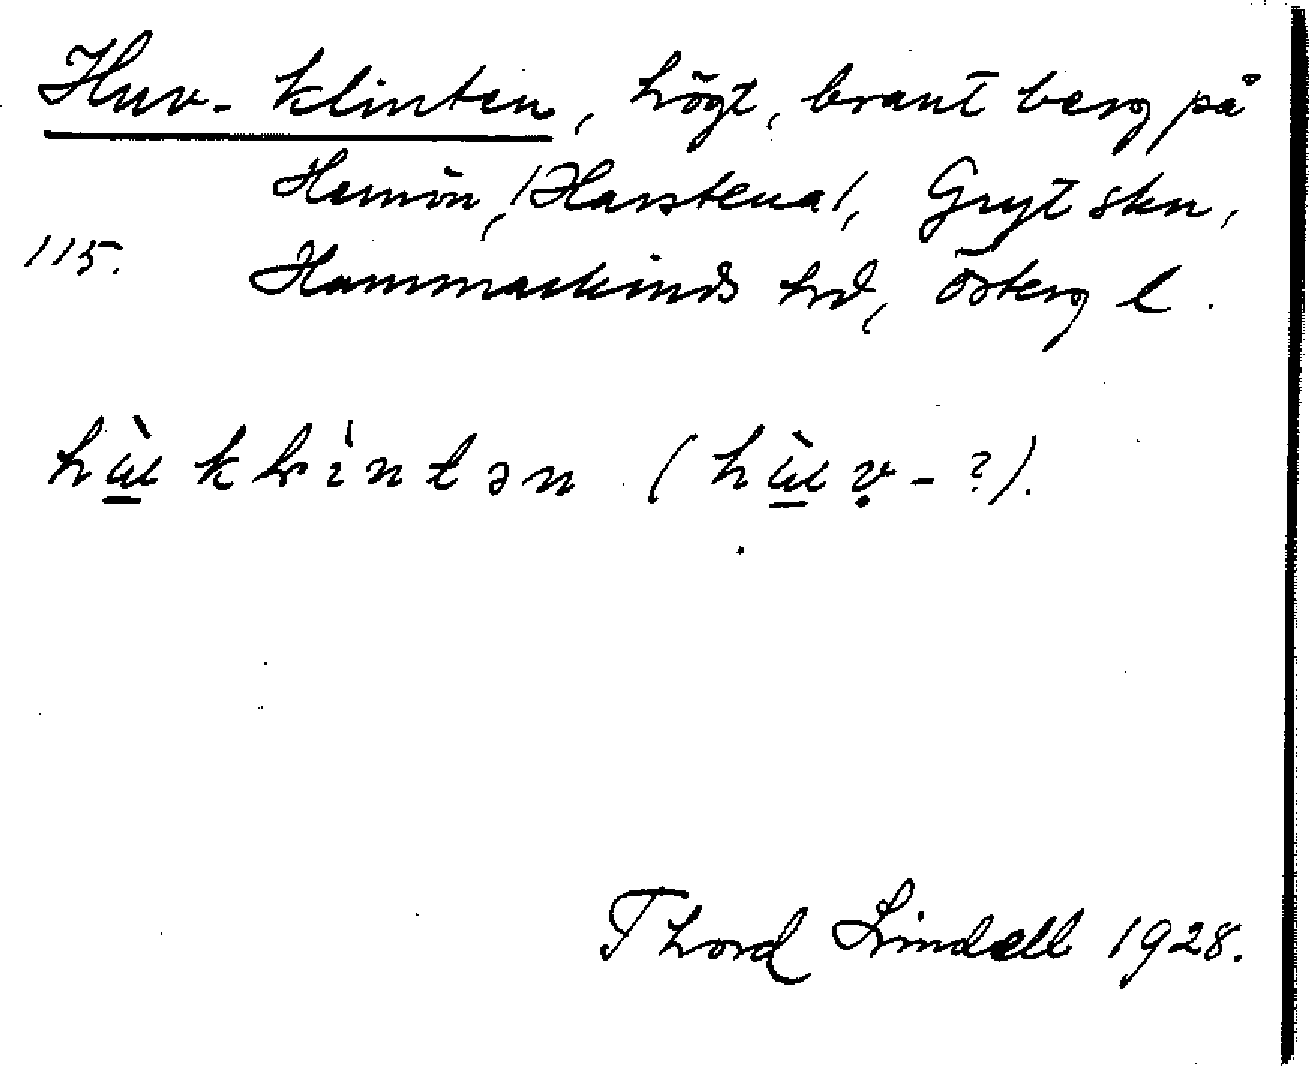 Huv-klinten, högt, brant berg på
Hamön, /Harstena/, Gryt skn,
115. Hammarkinds hrd, Österg l.
hùu̲klìntən (hùu̲v̥-?).
Thord Lindell 1928.